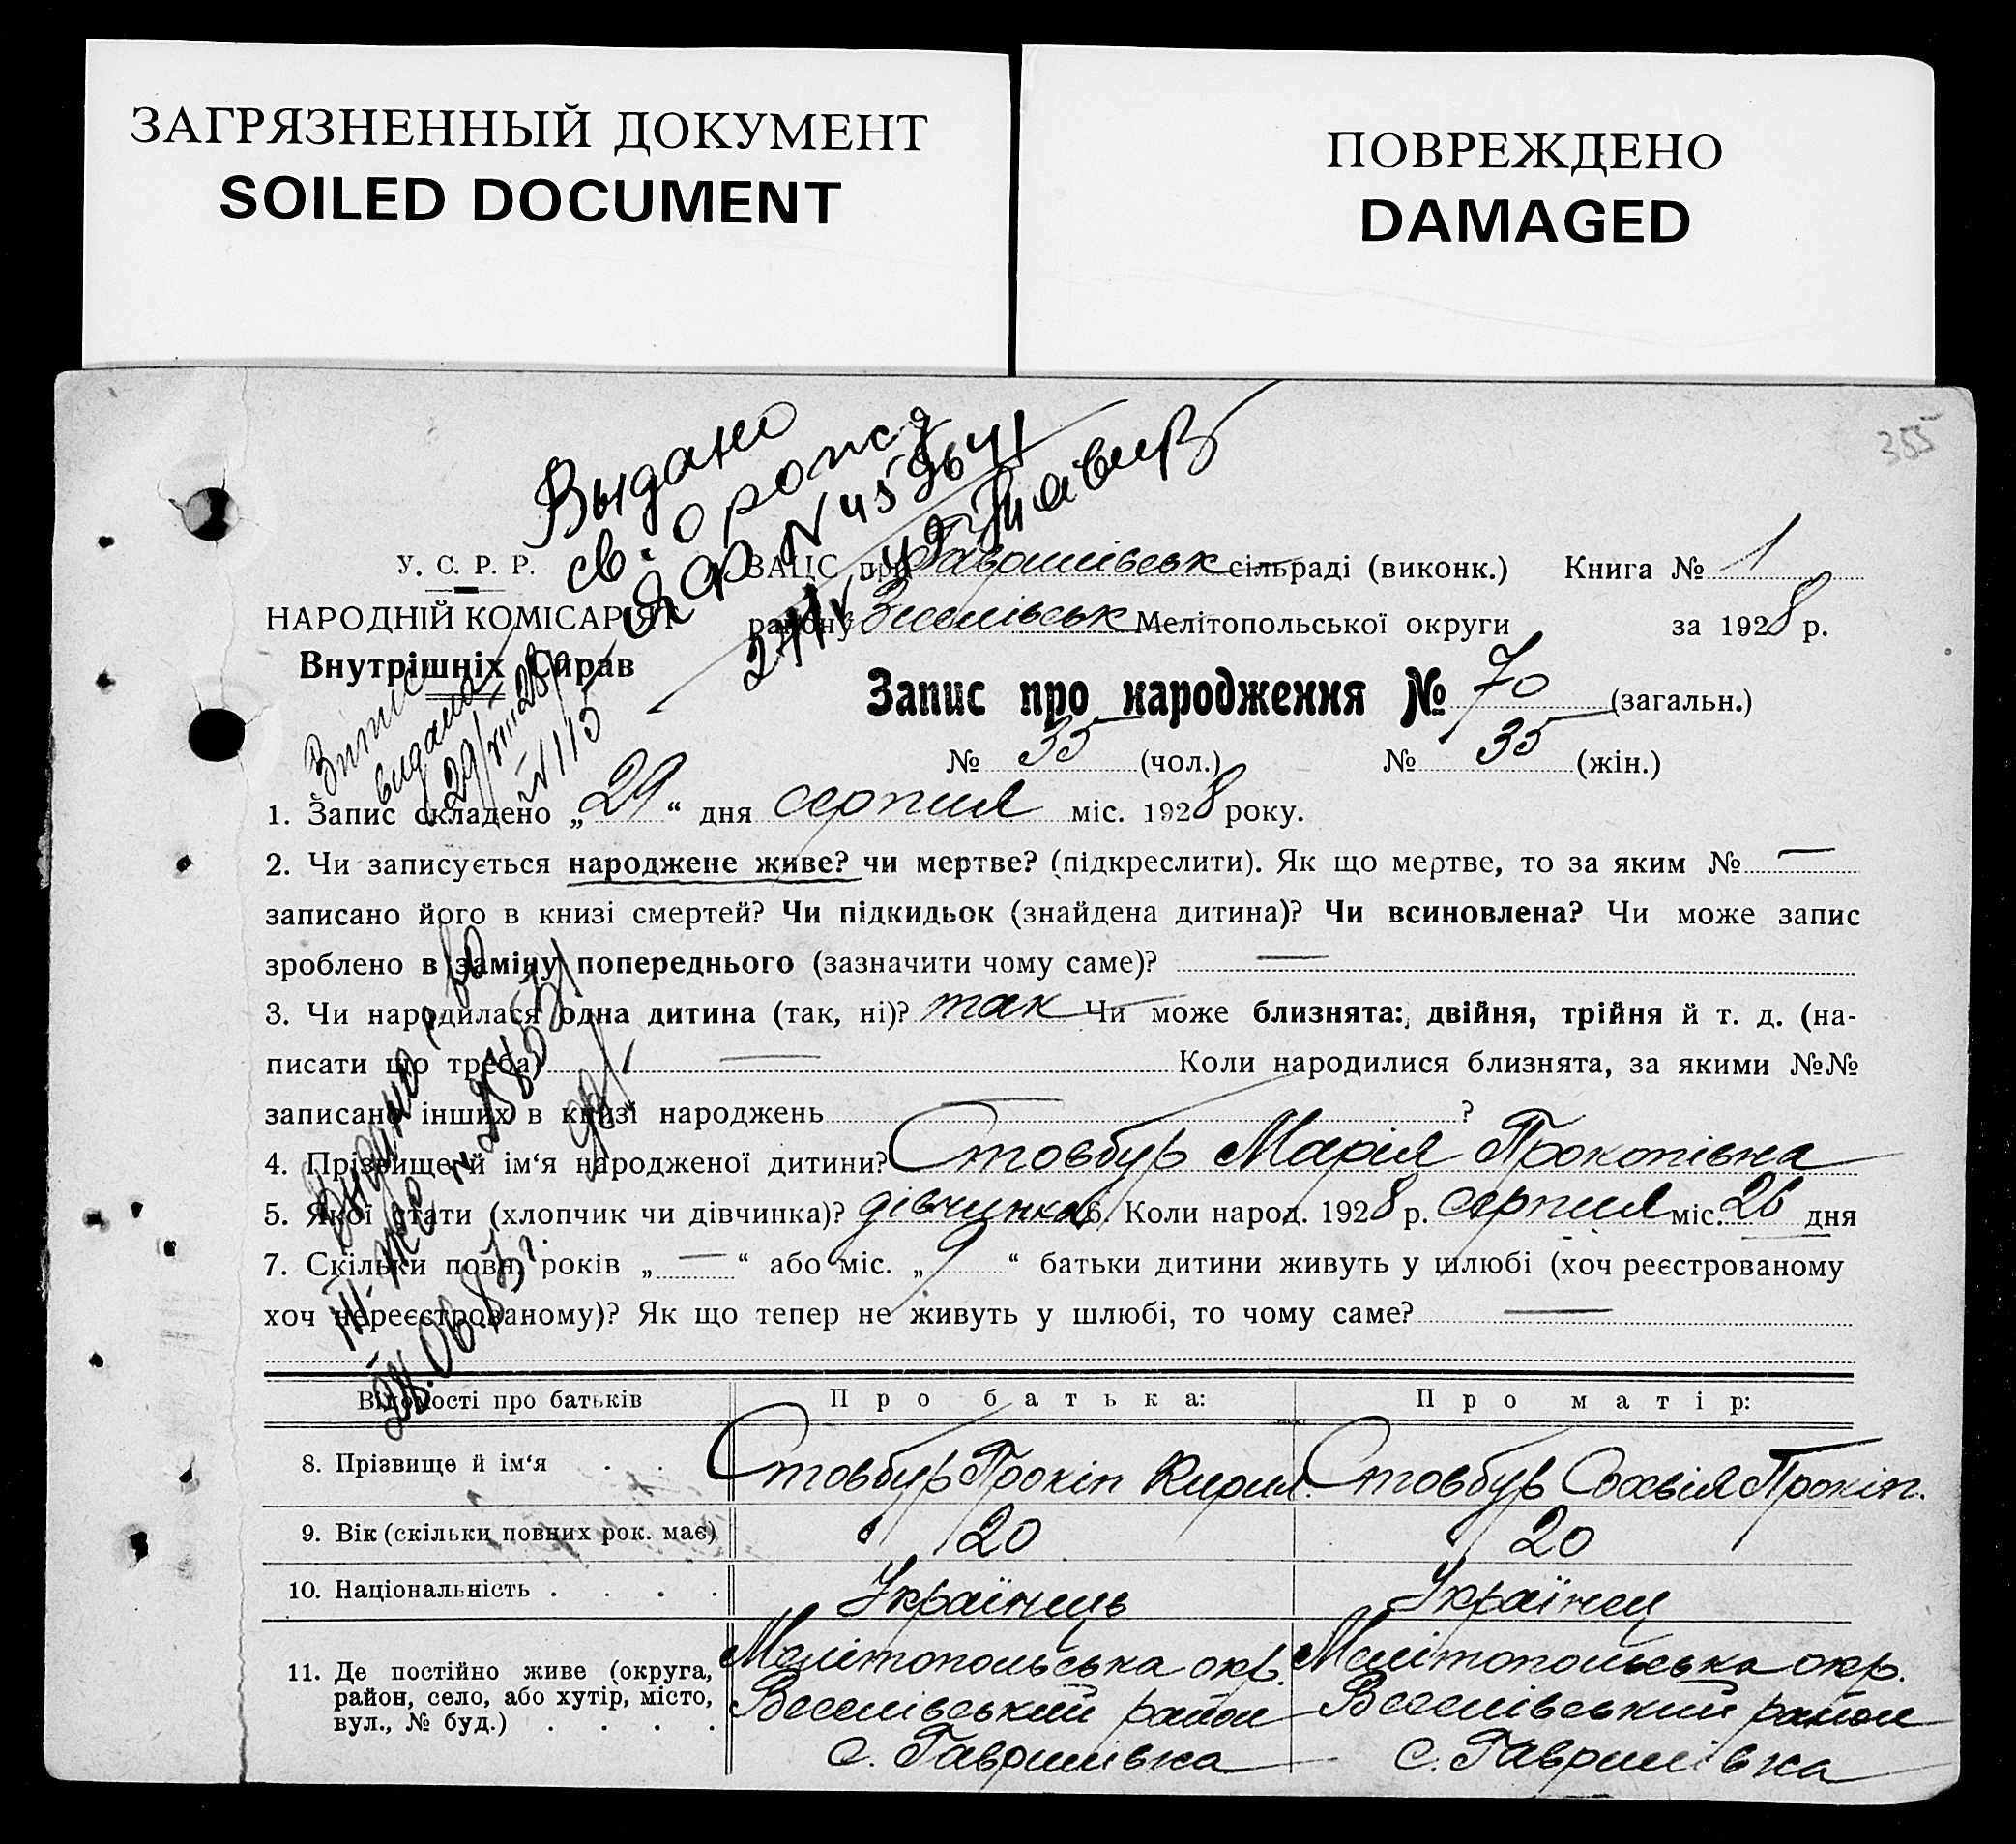 ЗАГРЯЗНЕННЫЙ ДОКУМЕНТ
SOILED DOCUMENT
ПОВРЕЖДЕНО
DAMAGED
355
Выдано
св.
У. С. Р. Р.
НАРОДНІЙ КОМІСАРІЯТ
Внутрішніх Справ
ЗАЦС при Гаврилівськ сільраді (виконк.) Книга № 1
району Веселівськ Мелітопольської округи за 1928 р.
Запис про народження № 70 (загальн.)
№ 35 (чол.) № 35 (жін.)
Випис
видана
29/VIII 28
N 115
1. Запис складено „29“ дня серпня міс. 1928 року.
2. Чи записується народжене живе? чи мертве? (підкреслити). Як що мертве, то за яким № —
записано його в книзі смертей? Чи підкидьок (знайдена дитина)? Чи всиновлена? Чи може запис
зроблено в заміну попереднього (зазначити чому саме)? —
3. Чи народилася одна дитина (так, ні)? так Чи може близнята: двійня, трійня й т. д. (на-
писати що треба) — Коли народилися близнята, за якими №№
записано інших в книзі народжень — ?
4. Прізвище й ім‘я народженої дитини? Стовбур Марія Прокопівна
5. Якої стати (хлопчик чи дівчинка)? дівчинка 6. Коли народ. 1928 р. серпня міс. 26 дня
7. Скільки повн. років „—“ або міс. „9“ батьки дитини живуть у шлюбі (хоч реєстрованому
хоч нереєстрованому)? Як що тепер не живуть у шлюбі, то чому саме? —
Відомості про батьків Про батька: Про матір:
8. Прізвище й ім‘я . . Стовбур Прокіп Кирил. Стовбур Софія Прокіп.
9. Вік (скільки повних рок. має) 20 20
10. Національність . . . . Українець Українец
11. Де постійно живе (округа, район, село, або хутір, місто, вул., № буд.) . . . .
Мелітопольська окр. Мелітопольська окр.
Веселівський район Веселівський район
с. Гаврилівка с. Гаврилівка